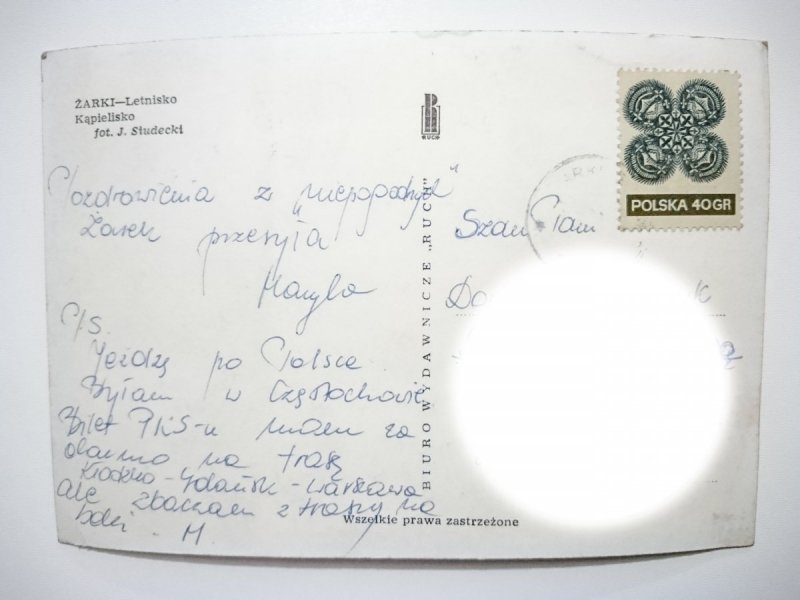 ŻARKI—Letnisko
Kąpielisko
fot. J. Siudecki
RUCH
POLSKA 40GR
Pozdrowienia z "niepogodnych"
Żarek przesyła
Maryla
P/S.
Jeżdżę po Polsce
Byłam w Częstochowie
Bilet PKS-u mam za
darmo na trasę
Kłodzko-Gdańsk-Warszawa
ale zbaczam z trasy na
boki - M
BIURO WYDAWNICZE „RUCH”
Szan. Pani
Wszelkie prawa zastrzeżone